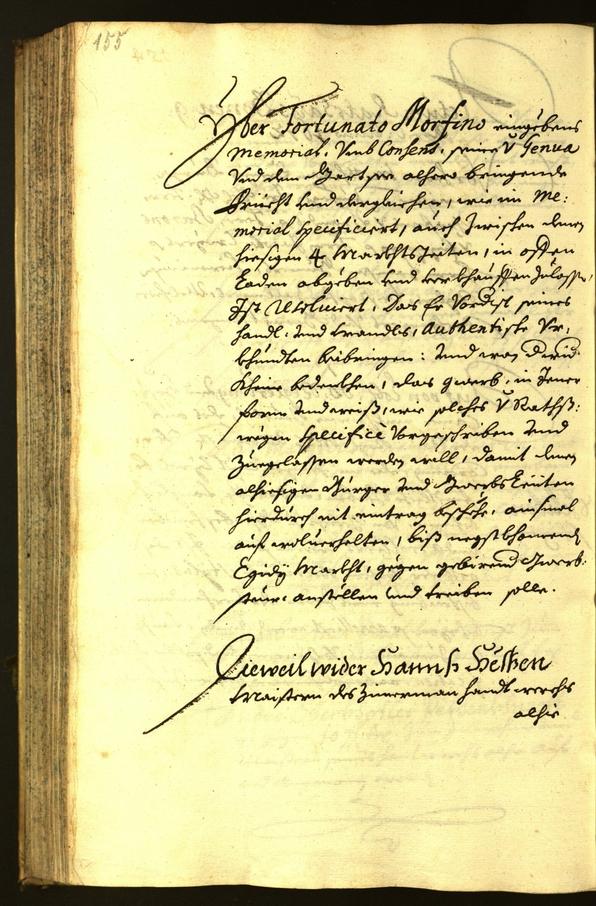 155
Yber Fortunato Morsino eingebens
Memorial, Vmb Consens, seine V Genua
Vnd dem Gartsee alhero bringende
Frücht vnd dergleichen, wie im Me:
morial specificiert, auch zwischen denen
hiesigen 4 Märkhtszeiten, in offen
Laden abgeben vnd verkhauffen zulassen,
Ist Resoluiert, Das Er Vordist seines
handl: vnd wandls, Authentische Vr:
khundten beibringen: vnd wan
Kheine bedenkhen, das gwerb, in Jener
form vnd weiß, wie solches V Rathß:
wegen specificè Vorgeschriben vnd
Zuegelassen werden will, damit denen
alhiesigen Burger vnd GwerbsLeüten
hierdurch nit eintrag beschehe, ainsmal
auf woluerhalten, biß negstkhomendt
Egidÿ Markht, gegen gebirend Gwerb:
steur: anstellen vnd treiben solle.
Dieweil wider Hannß
Maistern des Zimerman handtwerchs
alhie